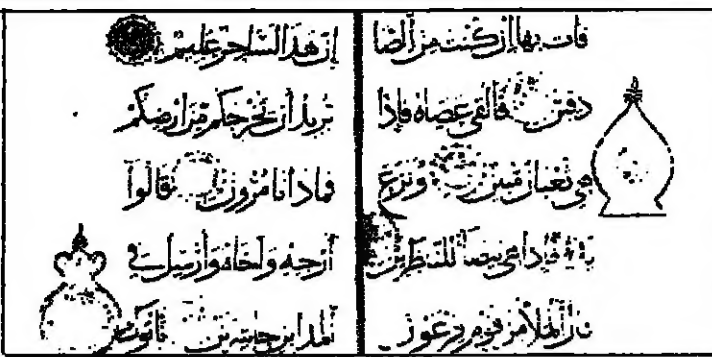 فات بها ان كنت من الصا
دقين فالقى عصاه فاذا
هي ثعبان مبين ونزع
يده فاذا هي بيضا للنظرين
قال الملا من قوم فرعون
ان هذا لساحر عليم
يريد ان يخرجكم من ارضكم
فماذا تامرون قالوا
ارجه واخاه وارسل في
المداين حاشرين ياتوك